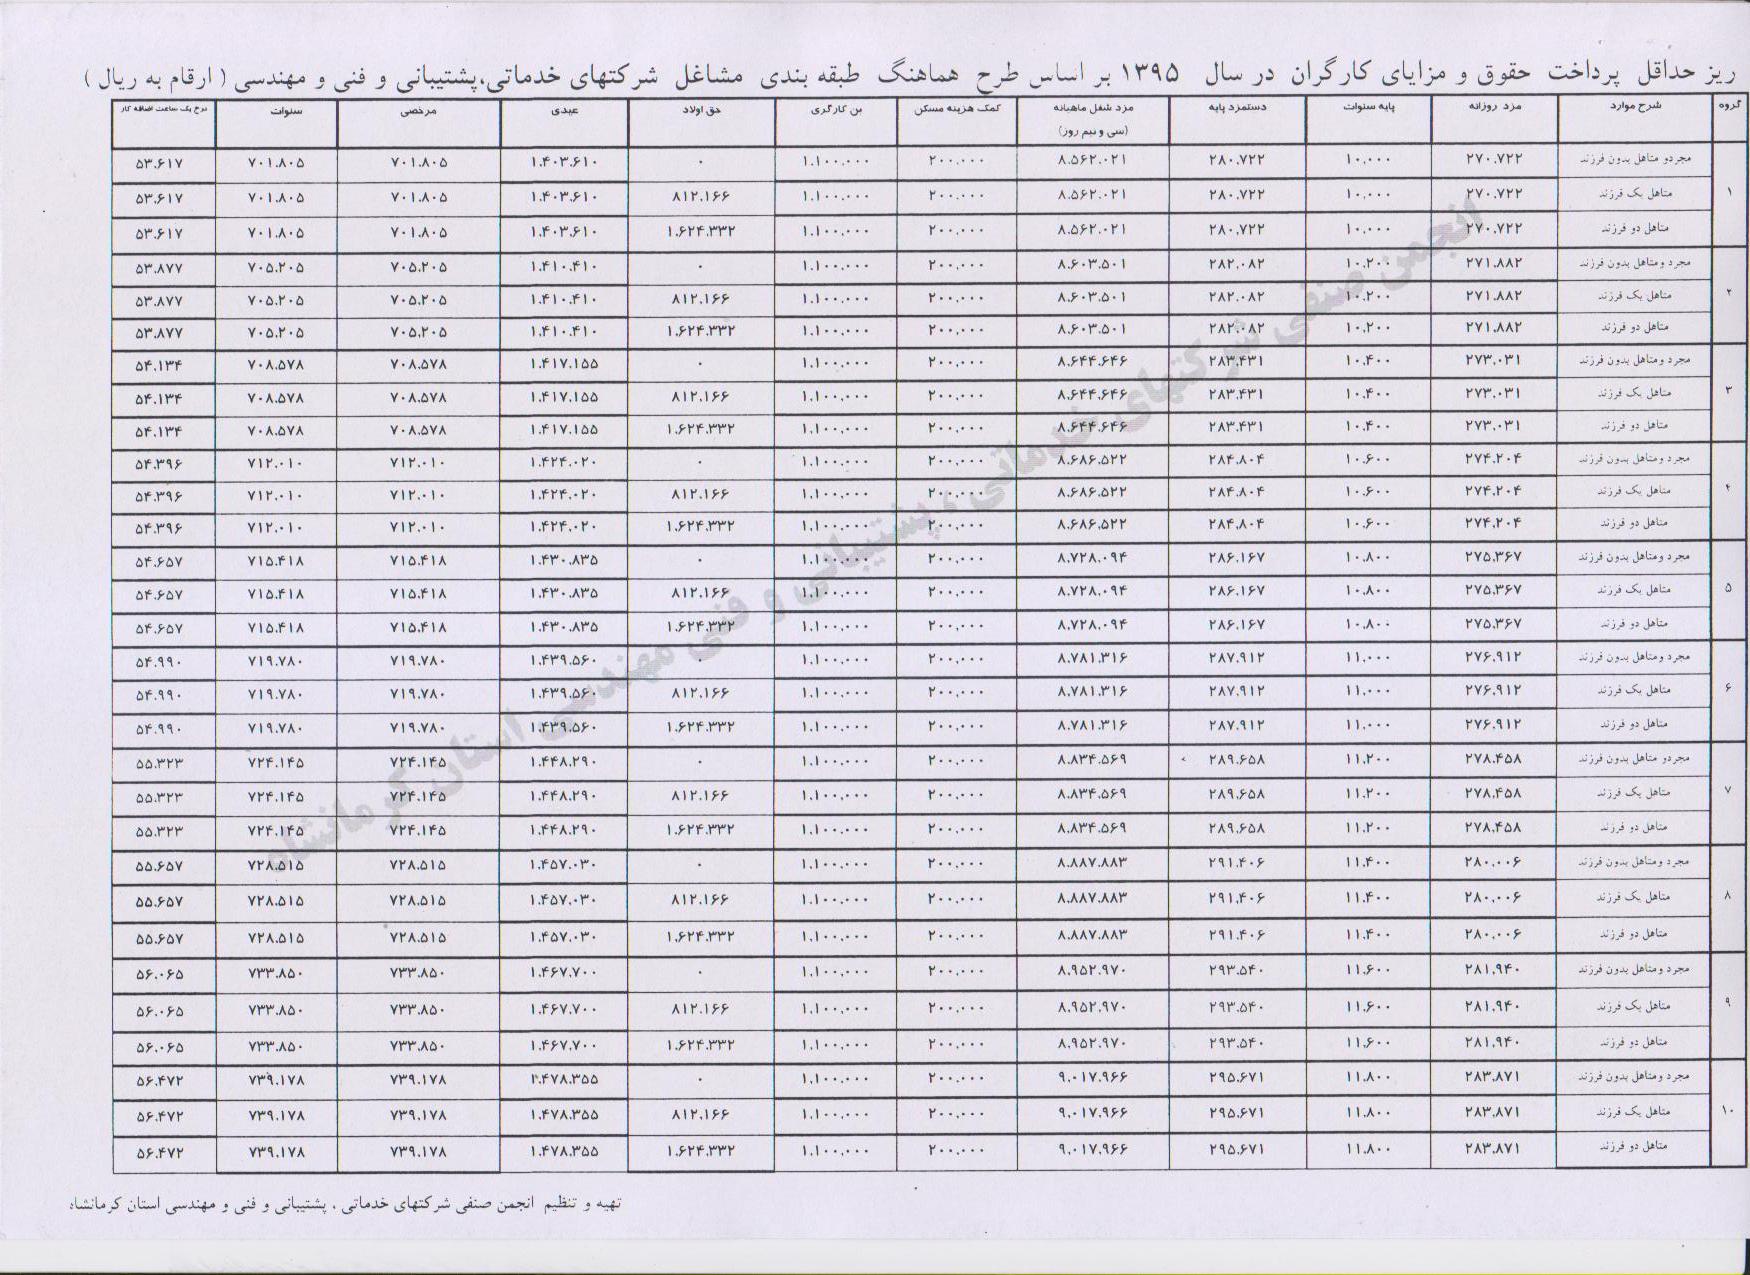 ریز حداقل پرداخت حقوق و مزایای کارگران در سال ۱۳۹۵ بر اساس طرح هماهنگ طبقه بندی مشاغل شرکتهای خدماتی،پشتیبانی و فنی و مهندسی ( ارقام به ریال )
گروه شرح موارد مزد روزانه پایه سنوات دستمزد پایه مزد شغل ماهیانه (سی و نیم روز) کمک هزینه مسکن بن کارگری حق اولاد عیدی مرخصی سنوات نرخ یک ساعت اضافه کار
۱ مجردو متاهل بدون فرزند ۲۷۰.۷۲۲ ۱۰.۰۰۰ ۲۸۰.۷۲۲ ۸.۵۶۲.۰۲۱ ۲۰۰.۰۰۰ ۱.۱۰۰.۰۰۰ ۰ ۱.۴۰۳.۶۱۰ ۷۰۱.۸۰۵ ۷۰۱.۸۰۵ ۵۳.۶۱۷
متاهل یک فرزند ۲۷۰.۷۲۲ ۱۰.۰۰۰ ۲۸۰.۷۲۲ ۸.۵۶۲.۰۲۱ ۲۰۰.۰۰۰ ۱.۱۰۰.۰۰۰ ۸۱۲.۱۶۶ ۱.۴۰۳.۶۱۰ ۷۰۱.۸۰۵ ۷۰۱.۸۰۵ ۵۳.۶۱۷
متاهل دو فرزند ۲۷۰.۷۲۲ ۱۰.۰۰۰ ۲۸۰.۷۲۲ ۸.۵۶۲.۰۲۱ ۲۰۰.۰۰۰ ۱.۱۰۰.۰۰۰ ۱.۶۲۴.۳۳۲ ۱.۴۰۳.۶۱۰ ۷۰۱.۸۰۵ ۷۰۱.۸۰۵ ۵۳.۶۱۷
۲ مجرد ومتاهل بدون فرزند ۲۷۱.۸۸۲ ۱۰.۲۰۰ ۲۸۲.۰۸۲ ۸.۶۰۳.۵۰۱ ۲۰۰.۰۰۰ ۱.۱۰۰.۰۰۰ ۰ ۱.۴۱۰.۴۱۰ ۷۰۵.۲۰۵ ۷۰۵.۲۰۵ ۵۳.۸۷۷
متاهل یک فرزند ۲۷۱.۸۸۲ ۱۰.۲۰۰ ۲۸۲.۰۸۲ ۸.۶۰۳.۵۰۱ ۲۰۰.۰۰۰ ۱.۱۰۰.۰۰۰ ۸۱۲.۱۶۶ ۱.۴۱۰.۴۱۰ ۷۰۵.۲۰۵ ۷۰۵.۲۰۵ ۵۳.۸۷۷
متاهل دو فرزند ۲۷۱.۸۸۲ ۱۰.۲۰۰ ۲۸۲.۰۸۲ ۸.۶۰۳.۵۰۱ ۲۰۰.۰۰۰ ۱.۱۰۰.۰۰۰ ۱.۶۲۴.۳۳۲ ۱.۴۱۰.۴۱۰ ۷۰۵.۲۰۵ ۷۰۵.۲۰۵ ۵۳.۸۷۷
۳ مجرد ومتاهل بدون فرزند ۲۷۳.۰۳۱ ۱۰.۴۰۰ ۲۸۳.۴۳۱ ۸.۶۴۴.۶۴۶ ۲۰۰.۰۰۰ ۱.۱۰۰.۰۰۰ ۰ ۱.۴۱۷.۱۵۵ ۷۰۸.۵۷۸ ۷۰۸.۵۷۸ ۵۴.۱۳۴
متاهل یک فرزند ۲۷۳.۰۳۱ ۱۰.۴۰۰ ۲۸۳.۴۳۱ ۸.۶۴۴.۶۴۶ ۲۰۰.۰۰۰ ۱.۱۰۰.۰۰۰ ۸۱۲.۱۶۶ ۱.۴۱۷.۱۵۵ ۷۰۸.۵۷۸ ۷۰۸.۵۷۸ ۵۴.۱۳۴
متاهل دو فرزند ۲۷۳.۰۳۱ ۱۰.۴۰۰ ۲۸۳.۴۳۱ ۸.۶۴۴.۶۴۶ ۲۰۰.۰۰۰ ۱.۱۰۰.۰۰۰ ۱.۶۲۴.۳۳۲ ۱.۴۱۷.۱۵۵ ۷۰۸.۵۷۸ ۷۰۸.۵۷۸ ۵۴.۱۳۴
۴ مجرد ومتاهل بدون فرزند ۲۷۴.۲۰۴ ۱۰.۶۰۰ ۲۸۴.۸۰۴ ۸.۶۸۶.۵۲۲ ۲۰۰.۰۰۰ ۱.۱۰۰.۰۰۰ ۰ ۱.۴۲۴.۰۲۰ ۷۱۲.۰۱۰ ۷۱۲.۰۱۰ ۵۴.۳۹۶
متاهل یک فرزند ۲۷۴.۲۰۴ ۱۰.۶۰۰ ۲۸۴.۸۰۴ ۸.۶۸۶.۵۲۲ ۲۰۰.۰۰۰ ۱.۱۰۰.۰۰۰ ۸۱۲.۱۶۶ ۱.۴۲۴.۰۲۰ ۷۱۲.۰۱۰ ۷۱۲.۰۱۰ ۵۴.۳۹۶
متاهل دو فرزند ۲۷۴.۲۰۴ ۱۰.۶۰۰ ۲۸۴.۸۰۴ ۸.۶۸۶.۵۲۲ ۲۰۰.۰۰۰ ۱.۱۰۰.۰۰۰ ۱.۶۲۴.۳۳۲ ۱.۴۲۴.۰۲۰ ۷۱۲.۰۱۰ ۷۱۲.۰۱۰ ۵۴.۳۹۶
۵ مجرد ومتاهل بدون فرزند ۲۷۵.۳۶۷ ۱۰.۸۰۰ ۲۸۶.۱۶۷ ۸.۷۲۸.۰۹۴ ۲۰۰.۰۰۰ ۱.۱۰۰.۰۰۰ ۰ ۱.۴۳۰.۸۳۵ ۷۱۵.۴۱۸ ۷۱۵.۴۱۸ ۵۴.۶۵۷
متاهل یک فرزند ۲۷۵.۳۶۷ ۱۰.۸۰۰ ۲۸۶.۱۶۷ ۸.۷۲۸.۰۹۴ ۲۰۰.۰۰۰ ۱.۱۰۰.۰۰۰ ۸۱۲.۱۶۶ ۱.۴۳۰.۸۳۵ ۷۱۵.۴۱۸ ۷۱۵.۴۱۸ ۵۴.۶۵۷
متاهل دو فرزند ۲۷۵.۳۶۷ ۱۰.۸۰۰ ۲۸۶.۱۶۷ ۸.۷۲۸.۰۹۴ ۲۰۰.۰۰۰ ۱.۱۰۰.۰۰۰ ۱.۶۲۴.۳۳۲ ۱.۴۳۰.۸۳۵ ۷۱۵.۴۱۸ ۷۱۵.۴۱۸ ۵۴.۶۵۷
۶ مجرد ومتاهل بدون فرزند ۲۷۶.۹۱۲ ۱۱.۰۰۰ ۲۸۷.۹۱۲ ۸.۷۸۱.۳۱۶ ۲۰۰.۰۰۰ ۱.۱۰۰.۰۰۰ ۰ ۱.۴۳۹.۵۶۰ ۷۱۹.۷۸۰ ۷۱۹.۷۸۰ ۵۴.۹۹۰
متاهل یک فرزند ۲۷۶.۹۱۲ ۱۱.۰۰۰ ۲۸۷.۹۱۲ ۸.۷۸۱.۳۱۶ ۲۰۰.۰۰۰ ۱.۱۰۰.۰۰۰ ۸۱۲.۱۶۶ ۱.۴۳۹.۵۶۰ ۷۱۹.۷۸۰ ۷۱۹.۷۸۰ ۵۴.۹۹۰
متاهل دو فرزند ۲۷۶.۹۱۲ ۱۱.۰۰۰ ۲۸۷.۹۱۲ ۸.۷۸۱.۳۱۶ ۲۰۰.۰۰۰ ۱.۱۰۰.۰۰۰ ۱.۶۲۴.۳۳۲ ۱.۴۳۹.۵۶۰ ۷۱۹.۷۸۰ ۷۱۹.۷۸۰ ۵۴.۹۹۰
۷ مجردو متاهل بدون فرزند ۲۷۸.۴۵۸ ۱۱.۲۰۰ ۲۸۹.۶۵۸ ۸.۸۳۴.۵۶۹ ۲۰۰.۰۰۰ ۱.۱۰۰.۰۰۰ ۰ ۱.۴۴۸.۲۹۰ ۷۲۴.۱۴۵ ۷۲۴.۱۴۵ ۵۵.۳۲۳
متاهل یک فرزند ۲۷۸.۴۵۸ ۱۱.۲۰۰ ۲۸۹.۶۵۸ ۸.۸۳۴.۵۶۹ ۲۰۰.۰۰۰ ۱.۱۰۰.۰۰۰ ۸۱۲.۱۶۶ ۱.۴۴۸.۲۹۰ ۷۲۴.۱۴۵ ۷۲۴.۱۴۵ ۵۵.۳۲۳
متاهل دو فرزند ۲۷۸.۴۵۸ ۱۱.۲۰۰ ۲۸۹.۶۵۸ ۸.۸۳۴.۵۶۹ ۲۰۰.۰۰۰ ۱.۱۰۰.۰۰۰ ۱.۶۲۴.۳۳۲ ۱.۴۴۸.۲۹۰ ۷۲۴.۱۴۵ ۷۲۴.۱۴۵ ۵۵.۳۲۳
۸ مجرد ومتاهل بدون فرزند ۲۸۰.۰۰۶ ۱۱.۴۰۰ ۲۹۱.۴۰۶ ۸.۸۸۷.۸۸۳ ۲۰۰.۰۰۰ ۱.۱۰۰.۰۰۰ ۰ ۱.۴۵۷.۰۳۰ ۷۲۸.۵۱۵ ۷۲۸.۵۱۵ ۵۵.۶۵۷
متاهل یک فرزند ۲۸۰.۰۰۶ ۱۱.۴۰۰ ۲۹۱.۴۰۶ ۸.۸۸۷.۸۸۳ ۲۰۰.۰۰۰ ۱.۱۰۰.۰۰۰ ۸۱۲.۱۶۶ ۱.۴۵۷.۰۳۰ ۷۲۸.۵۱۵ ۷۲۸.۵۱۵ ۵۵.۶۵۷
متاهل دو فرزند ۲۸۰.۰۰۶ ۱۱.۴۰۰ ۲۹۱.۴۰۶ ۸.۸۸۷.۸۸۳ ۲۰۰.۰۰۰ ۱.۱۰۰.۰۰۰ ۱.۶۲۴.۳۳۲ ۱.۴۵۷.۰۳۰ ۷۲۸.۵۱۵ ۷۲۸.۵۱۵ ۵۵.۶۵۷
۹ مجرد ومتاهل بدون فرزند ۲۸۱.۹۴۰ ۱۱.۶۰۰ ۲۹۳.۵۴۰ ۸.۹۵۲.۹۷۰ ۲۰۰.۰۰۰ ۱.۱۰۰.۰۰۰ ۰ ۱.۴۶۷.۷۰۰ ۷۳۳.۸۵۰ ۷۳۳.۸۵۰ ۵۶.۰۶۵
متاهل یک فرزند ۲۸۱.۹۴۰ ۱۱.۶۰۰ ۲۹۳.۵۴۰ ۸.۹۵۲.۹۷۰ ۲۰۰.۰۰۰ ۱.۱۰۰.۰۰۰ ۸۱۲.۱۶۶ ۱.۴۶۷.۷۰۰ ۷۳۳.۸۵۰ ۷۳۳.۸۵۰ ۵۶.۰۶۵
متاهل دو فرزند ۲۸۱.۹۴۰ ۱۱.۶۰۰ ۲۹۳.۵۴۰ ۸.۹۵۲.۹۷۰ ۲۰۰.۰۰۰ ۱.۱۰۰.۰۰۰ ۱.۶۲۴.۳۳۲ ۱.۴۶۷.۷۰۰ ۷۳۳.۸۵۰ ۷۳۳.۸۵۰ ۵۶.۰۶۵
۱۰ مجرد ومتاهل بدون فرزند ۲۸۳.۸۷۱ ۱۱.۸۰۰ ۲۹۵.۶۷۱ ۹.۰۱۷.۹۶۶ ۲۰۰.۰۰۰ ۱.۱۰۰.۰۰۰ ۰ ۱.۴۷۸.۳۵۵ ۷۳۹.۱۷۸ ۷۳۹.۱۷۸ ۵۶.۴۷۲
متاهل یک فرزند ۲۸۳.۸۷۱ ۱۱.۸۰۰ ۲۹۵.۶۷۱ ۹.۰۱۷.۹۶۶ ۲۰۰.۰۰۰ ۱.۱۰۰.۰۰۰ ۸۱۲.۱۶۶ ۱.۴۷۸.۳۵۵ ۷۳۹.۱۷۸ ۷۳۹.۱۷۸ ۵۶.۴۷۲
متاهل دو فرزند ۲۸۳.۸۷۱ ۱۱.۸۰۰ ۲۹۵.۶۷۱ ۹.۰۱۷.۹۶۶ ۲۰۰.۰۰۰ ۱.۱۰۰.۰۰۰ ۱.۶۲۴.۳۳۲ ۱.۴۷۸.۳۵۵ ۷۳۹.۱۷۸ ۷۳۹.۱۷۸ ۵۶.۴۷۲
انجمن صنفی شرکتهای خدماتی ، پشتیبانی و فنی مهندسی استان کرمانشاه
تهیه و تنظیم انجمن صنفی شرکتهای خدماتی ، پشتیبانی و فنی و مهندسی استان کرمانشاه